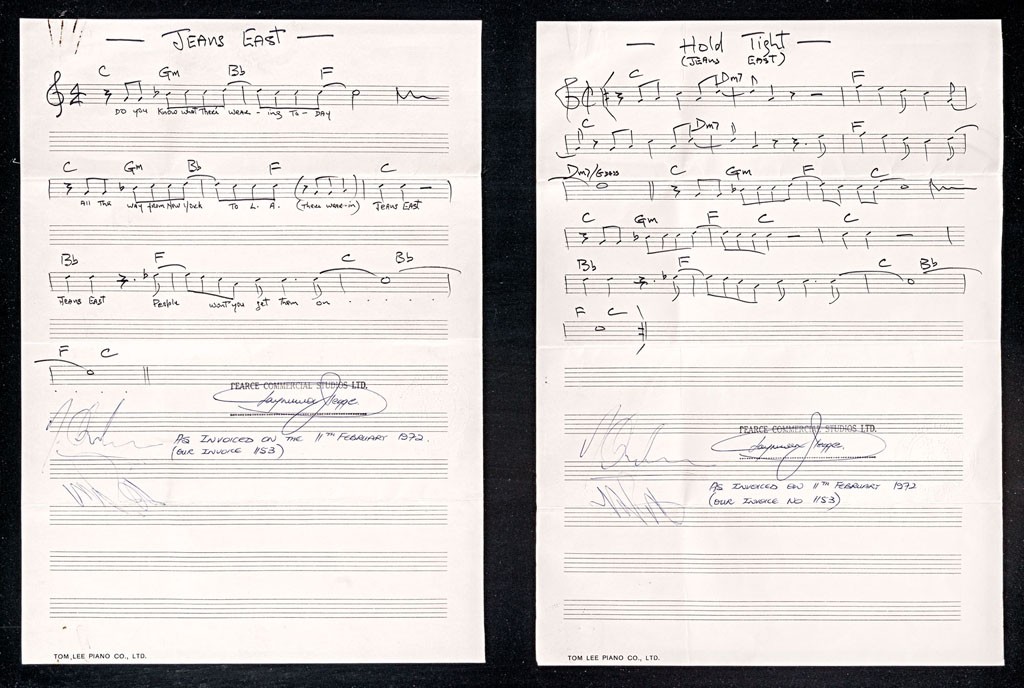 — JEANS EAST —
C Gm Bb F
DO YOU KNOW WHAT THEIR WEAR - ING TO - DAY
C Gm Bb F C
ALL THE WAY from NEW YORK TO L. A. (THEIR WEAR-in) JEANS EAST
Bb F C Bb
JEANS EAST PEOPLE WON'T YOU get THEM ON . . . . . . .
F C
PEARCE COMMERCIAL STUDIOS LTD.
AS INVOICED ON THE 11TH FEBRUARY 1972.
(OUR INVOICE 1153)
TOM LEE PIANO CO., LTD.
— Hold Tight —
(JEANS EAST)
C Dm7 F
C Dm7 F
Dm7/G BASS C Gm F C
C Gm F C
Bb F C Bb
F C
PEARCE COMMERCIAL STUDIOS LTD.
AS INVOICED ON 11TH FEBRUARY 1972
(OUR INVOICE NO 1153)
TOM LEE PIANO CO., LTD.